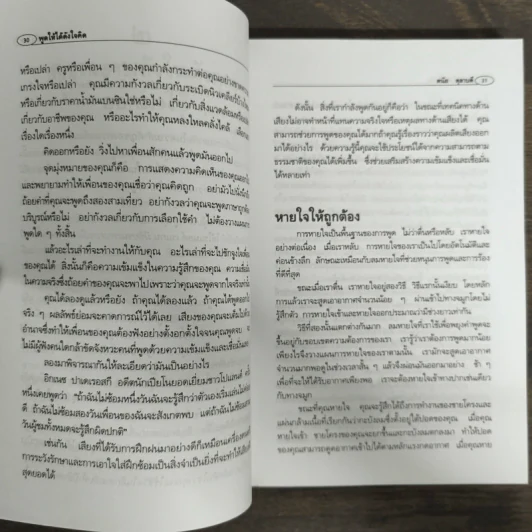 30 พูดให้ได้ดังใจคิด
หรือเปล่า ครูหรือเพื่อน ๆ ของคุณกำลังกระทำต่อคุณอย่าง
เกรงใจหรือเปล่า คุณมีความกังวลเกี่ยวกับระเบิดนิวเคลียร์
หรือเกี่ยวกับราคาน้ำมันเบนซินใช่หรือไม่ เกี่ยวกับสิ่งแวดล้อม
เกี่ยวกับอาชีพของคุณ หรืออะไรทำให้คุณหลงใหลคลั่งไคล้ เลือก
เรื่องใดเรื่องหนึ่ง
คิดออกหรือยัง วิ่งไปหาเพื่อนสักคนแล้วพูดมันออกไป
จุดมุ่งหมายของคุณก็คือ การแสดงความคิดเห็นของคุณออก
และพยายามทำให้เพื่อนของคุณเชื่อว่าคุณคิดถูก อย่ามัวไป
ถ้อยคำที่คุณพูดถึงสองสามเที่ยว อย่ากังวลว่าคุณจะพูดภาษาถูก
บริบูรณ์หรือไม่ อย่ากังวลเกี่ยวกับการเลือกใช้คำ ไม่ต้องวางแผน
พูดใด ๆ ทั้งสิ้น
แล้วอะไรเล่าที่จะทำงานให้กับคุณ อะไรเล่าที่จะไปชักจูงใจเพื่อน
ของคุณได้ สิ่งนั้นก็คือความเข้มแข็งในความรู้สึกของคุณ ความ
ในความจริงซึ่งถ้อยคำของคุณจะพาไปเพราะว่าคุณจะพูดจากใจจริง
คุณได้ลองดูแล้วหรือยัง ถ้าคุณได้ลองแล้ว ถ้าคุณได้พูดออก
จริง ๆ ผลลัพธ์ย่อมจะคาดการณ์ไว้ได้เลย เสียงของคุณจะเต็มไปด้วย
อำนาจซึ่งทำให้เพื่อนของคุณต้องฟังอย่างตั้งอกตั้งใจจนคุณพูดจบ
ไม่มีผู้ฟังคนใดกล้าขัดจังหวะคนที่พูดด้วยความเข้มแข็งและเชื่อมั่น
ลองมาพิจารณากันให้ละเอียดว่ามันเป็นอย่างไร
อิกเนซ ปาเดเรอสกี อดีตนักเปียโนยอดเยี่ยมชาวโปแลนด์
หนึ่งเคยพูดว่า "ถ้าฉันไม่ซ้อมหนึ่งวันฉันจะรู้สึกว่าตัวเองเริ่มเล่นไม่
ดี ถ้าฉันไม่ซ้อมสองวันเพื่อนของฉันจะสังเกตพบ แต่ถ้าฉันไม่ซ้อม
วันผู้ชมทั้งหมดจะรู้สึกผิดปกติ"
เช่นกัน เสียงที่ได้รับการฝึกฝนมาอย่างดีก็เหมือนเครื่องดนตรี
การระวังรักษาและการเอาใจใส่ฝึกซ้อมเป็นสิ่งจำเป็นยิ่งที่จะทำให้เสียง
สุดยอดได้
ดนัย 31
ดังนั้น สิ่งที่เรากำลังพูดกันอยู่ก็คือว่า ในขณะที่เทคนิคทางด้าน
เสียงไม่อาจทำหน้าที่แทนความจริงใจหรือเหตุผลทางด้านเสียงได้ คุณ
สามารถช่วยการพูดของคุณได้มากถ้าคุณรู้เรื่องราวว่าคุณผลิตเสียงออก
มาได้อย่างไร ด้วยความรู้นี้คุณจะใช้ประโยชน์ได้จากความสามารถตาม
ธรรมชาติของคุณได้เพิ่มขึ้น ซึ่งช่วยเสริมสร้างความเข้มแข็งและเชื่อมั่น
ได้หลายเท่า
หายใจให้ถูกต้อง
การหายใจเป็นพื้นฐานของการพูด ไม่ว่าตื่นหรือหลับ เราหายใจ
อย่างต่อเนื่อง เมื่อเราหลับ การหายใจของเราเป็นไปโดยอัตโนมัติและ
ค่อนข้างลึก ลักษณะเหมือนกับลมหายใจที่ช่วยหนุนการพูดและการร้อง
ที่ดีที่สุด
ขณะเมื่อเราตื่น เราหายใจอยู่สองวิธี วิธีแรกนั้นเงียบ โดยหลัก
การแล้วเราจะสูดเอาอากาศจำนวนน้อย ๆ ผ่านเข้าไปทางจมูกโดยไม่
รู้สึกตัว การหายใจเข้าและหายใจออกประมาณว่ามีช่วงยาวเท่ากัน
วิธีที่สองนั้นแตกต่างกันมาก ลมหายใจที่เราใช้เพื่อพยุงคำพูดจะ
ขึ้นอยู่กับขอบเขตความต้องการของเรา เรารู้ว่าเราต้องการพูดมากน้อย
เพียงไรจึงวางแผนการหายใจของเราตามนั้น เรามักจะสูดเอาอากาศ
จำนวนมากพอดูในช่วงเวลาสั้น ๆ แล้วจึงผ่อนมันออกมาอย่าง ช้า ๆ
เพื่อที่จะให้ได้รับอากาศเพียงพอ เราจะต้องหายใจเข้าทางปากเช่นเดียว
กับทางจมูก
ขณะที่คุณหายใจ คุณจะรู้สึกได้ถึงการทำงานของชายโครงและ
แผ่นกล้ามเนื้อที่เรียกกันว่ากะบังลมซึ่งตั้งอยู่ใต้ปอดของคุณ เมื่อคุณ
หายใจเข้า ชายโครงของคุณจะยกขึ้นและกะบังลมตกลงมา ทำให้ปอด
ของคุณสามารถดูดอากาศเข้าไปได้ตามหลักแรงกดอากาศ เมื่อคุณหาย